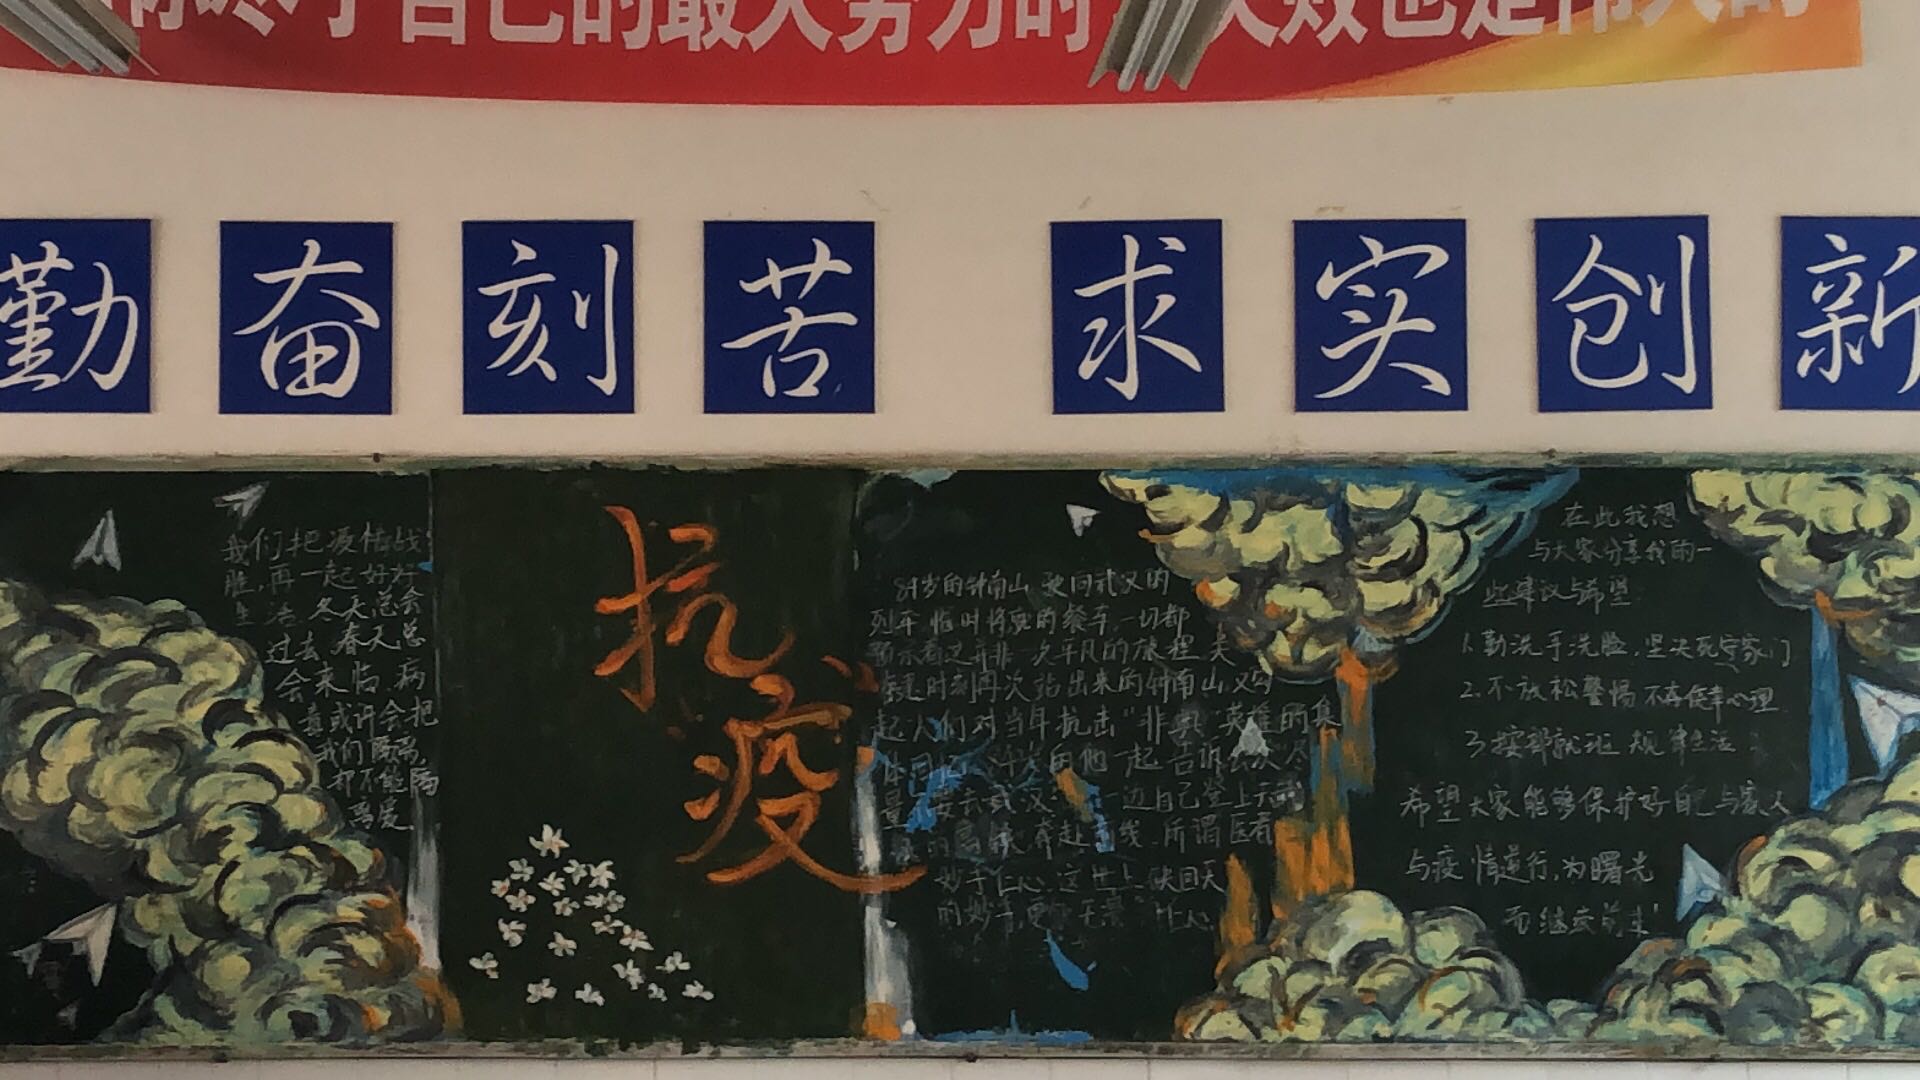 你尽了自己的最大努力时
失败也是伟大的
勤奋刻苦 求实创新
我们把疫情战
胜,再一起好好
生活。冬天总会
过去,春天总
会来临。病
毒或许会把
我们隔离,
却不能隔
离爱。
抗疫
84岁的钟南山,驶向武汉的
列车,临时将就的餐车,一切都
预示着这并非一次平凡的旅程,关
键时刻再次站出来的钟南山,又勾
起人们对当年抗击"非典"英雄的集
一边自己登上
的高铁奔赴 线。所谓医者
妙手仁心,这世上 缺回天
的妙手,更 仁心
在此我想
与大家分享我的一
些建议与希望
1.勤洗手洗脸,坚决死守家门
2.不放松警惕 不存侥幸心理
3.按部就班 规律生活
希望大家能够保护好自己与家人
与疫情逆行,为曙光
而继续前来!